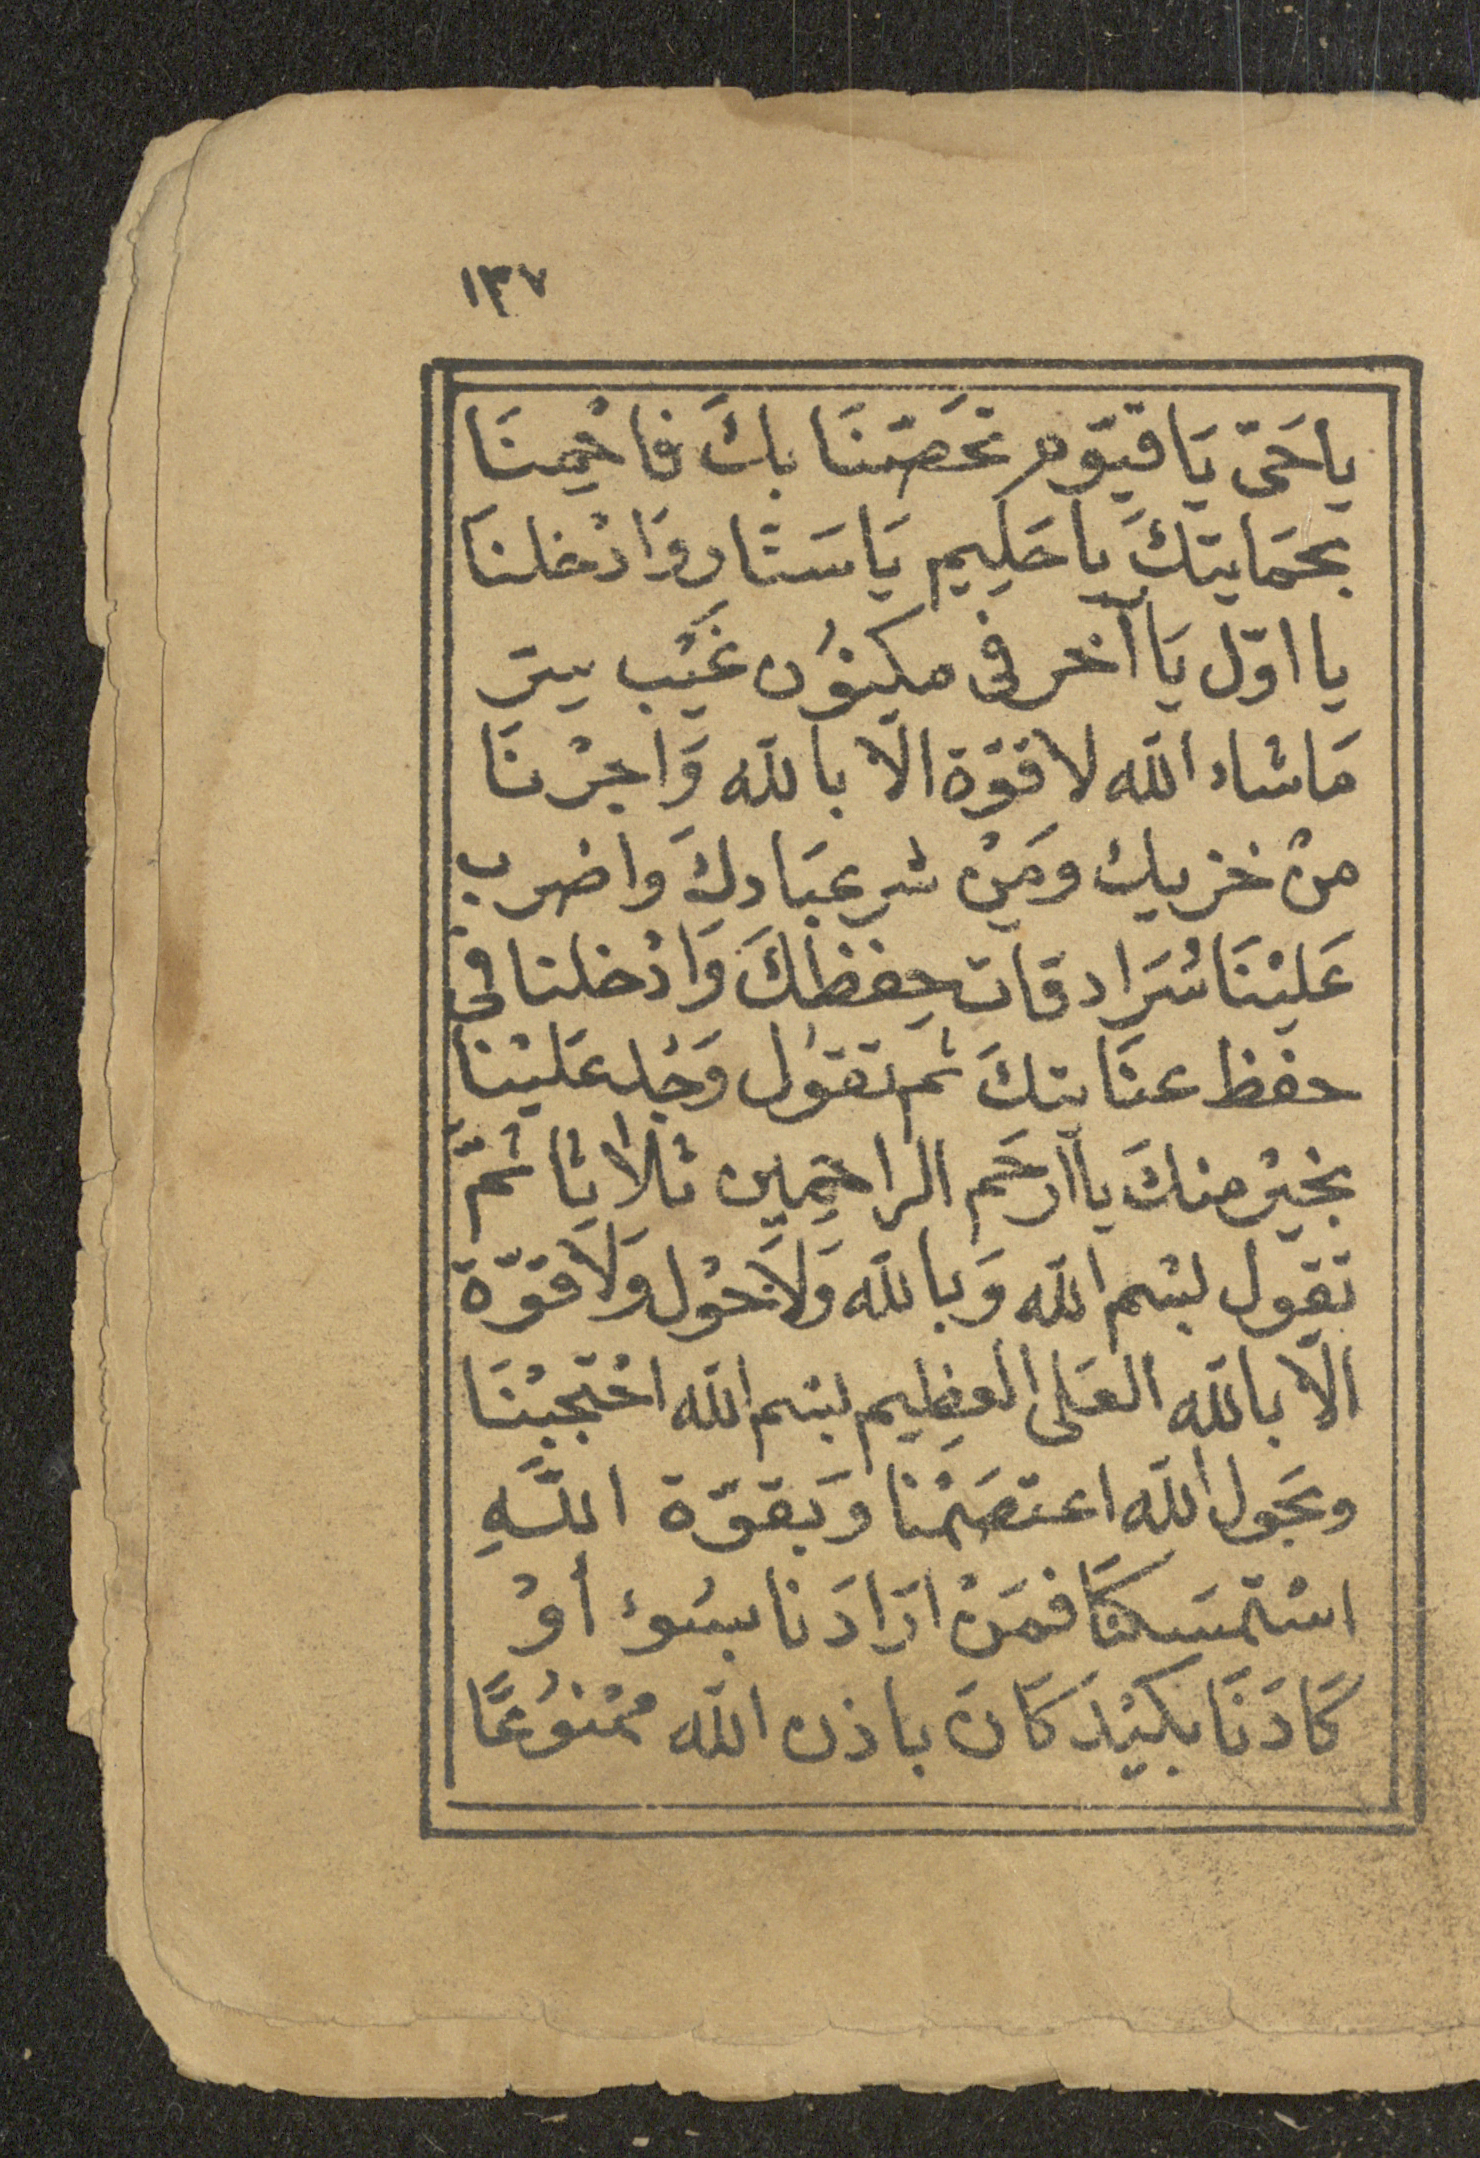 ١٣٧
ياحَىّ يَا قَيّوم تحَصّنَا بِكَ فاحْمِنَا
بحمَايتكَ يا حَلِيم يَا سَتّار وَادْخلنَا
يا اوّل يَا آخر فى مكنوُن غَيْب سِرّ
مَاشاء الله لا قوّة الّا بالله وَاجرْنا
منْ خزيك ومَنْ شر عبَادِكَ واضرب
عَليْنَا سُرَادقات حِفظكَ وَادْخلنا فى
حفظ عنَايتكَ ثم تقوُل وَجُد عَليْنا
بخيْر منكَ يا ارحَم الراحِمِين ثلاثا ثمّ
تقول بسْم الله وَبالله وَلَا حوْل وَلَا قوّة
الّا بالله العَلى العظِيم بسْم الله احْتجَبْنَا
وبحَول الله اعتصَمْنا وَبقوّة اللَّهِ
اسْتمسَكنَا فمَنْ ارَادَنا بسوُء أوْ
كَادَنَا بكَيْدَ كَانَ باذن الله ممْنوُعًا